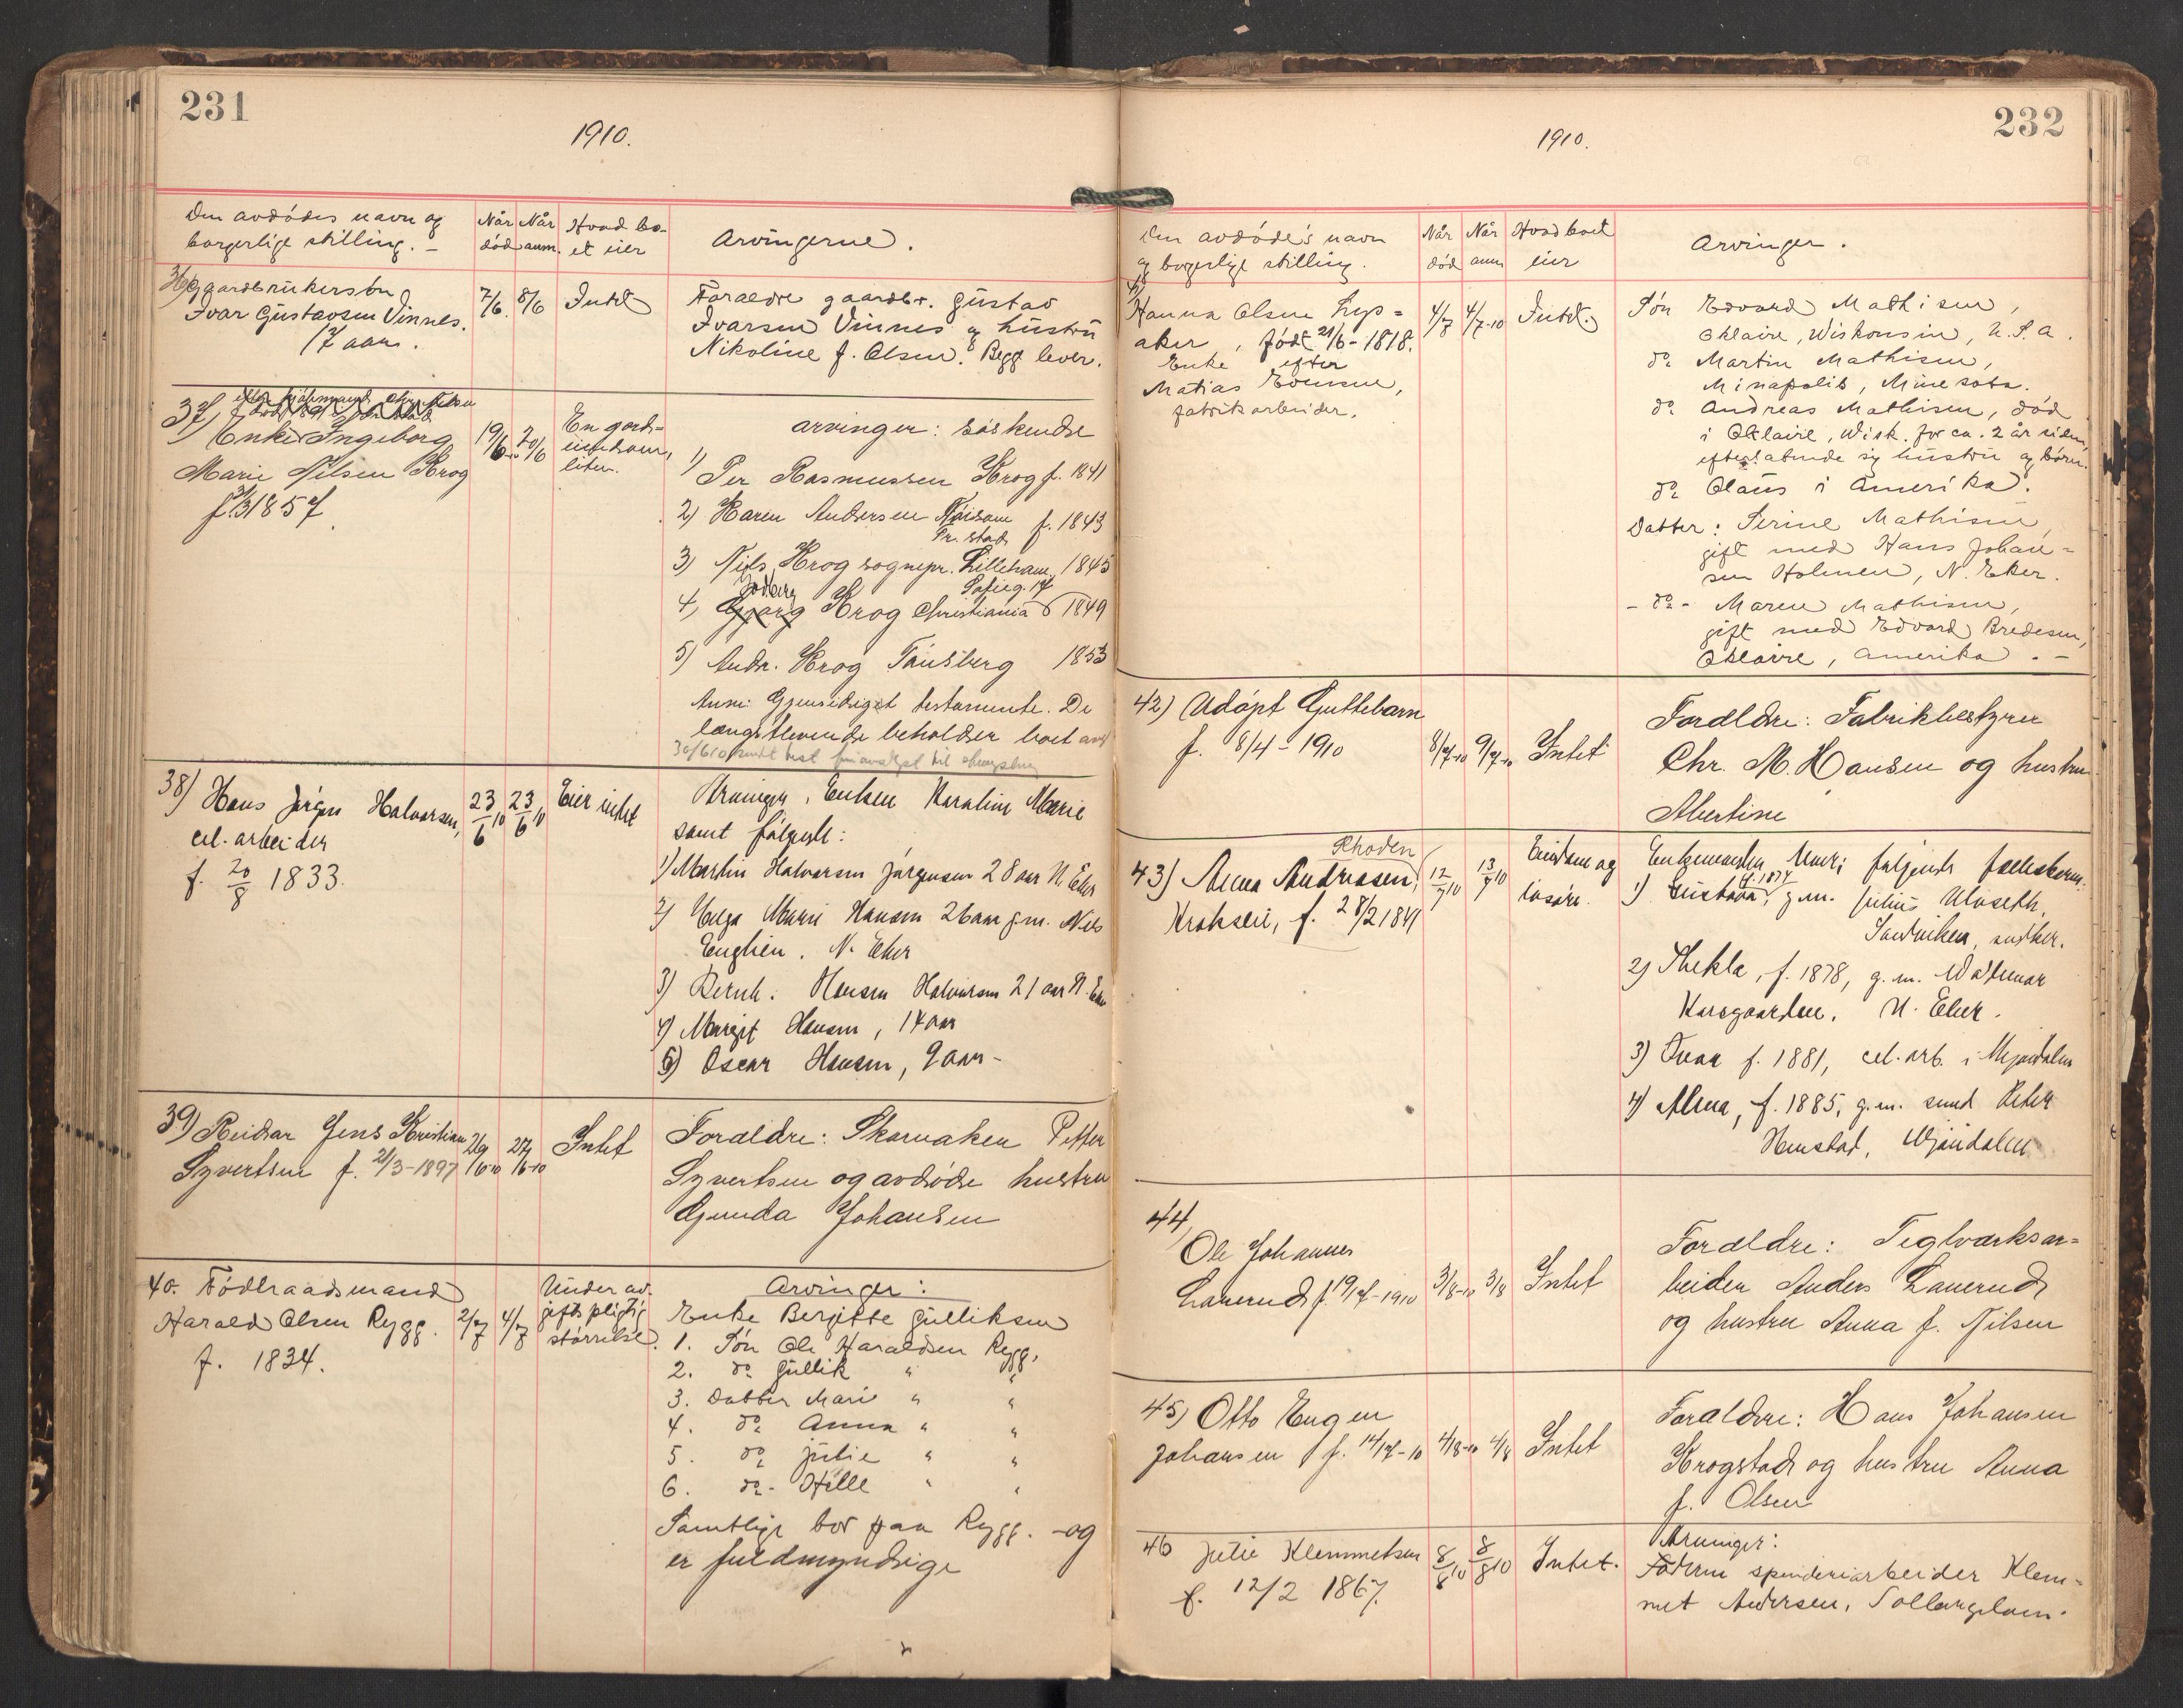 231
1910.
Den avdødes navn og
borgerlige stilling. –
Når
død
Når
anm.
Hvad bo-
et eier
Arvingerne.
36) Gaardbrukersøn
Ivar Gustavsen Vinnes.
17 aar.
7/6.
8/6
Intet
Foraeldre gaardbr. Gustav
Ivarsen Vinnes og hustru
Nikoline f. Olsen. Begge lever.
37)
Enke Ingeborg
Marie Nilsen Krog
f. 3/3 1857
19/6-10
20/6
En gård-
eiendom,
liten.
arvinger: søskende
1) Per Rasmussen Krog f. 1841
2) Karen Andersen f. 1843
Fr. stad
3) Nils Krog sognepr. Lilleham. 1845
Sofieg. 14
4) Krog Christiania 1849
5) Andr. Krog Tønsberg 1853
Anm: Gjensidigt testamente. De
længstlevende beholder boet
38) Hans Jørgen Halvorsen,
cel. arbeider
f. 20/8 1833.
23/6 10
23/6 10
Eier intet
Arvinger, Enken Karoline Marie
samt følgende:
1) Martin Halvorsen Jørgensen 28 aar N. Eker
2) Helga Marie Hansen 26 aar g.m. Nils
Enghien. N. Eker
3) Bernh. Hansen Halvorsen 21 aar N. Eker
4) Margit Hansen, 14 aar
5) Oscar Hansen, 9 aar –
39) Reidar Jens Kristian
Syvertsen f. 21/3-1897
26/6-10
27/6-10
Intet
Foraldre: Skomaker Petter
Syvertsen og avdøde hustru
Gunda Johansen
40. Födtraadsmand
Harald Olsen Rygg.
f. 1834.
2/7
4/7
Under av-
giftspligtig
størrelse.
Arvinger:
Enke Bergitte Gulliksen
1. Søn Ole Haraldsen Rygg,
2. do Gullik " "
3. Datter Mari " "
4. do Anna " "
5. do Julie " "
6. do - Hille " "
Samtlige bor paa Rygg. - og
er fuldmyndige
232
1910.
Den avdøde's navn
og borgerlige stilling.
Når
død
Når
anm
Hvad boet
eier
Arvinger.
Hanna Olsen Lyp=
aker, født 21/6-1818.
Enke efter
Matias Evensen,
fabrikarbeider.
4/7
4/7-10
Intet.
Søn Edvard Mathisen,
Oklaire, Wiskonsin, U.S.A.
do Martin Mathisen,
Minapolis, Minesota.
do Andreas Mathisen, død
i Oklaire, Wisk. for ca. 2 år siden,
efterlatende sig hustru og børn.
do Olaus i Amerika.
Datter: Serine Mathisen,
gift med Hans Johan=
sen Holmen, N. Eker.
- do - Maren Mathisen,
gift med Edvard Bredesen,
Oklaire, Amerika. –
42) Udøpt Guttebarn
f. 8/4-1910
8/7-10
9/7-10
Intet
Foraldre: Fabrikbestyrer
Chr. M. Hansen og hustru
Albertine
Rhoden
43) Anna Andreasen,
Krokseie, f. 28/2 1841
12/7 10
13/7 10
Eiendom og
løsøre.
følgende fællesbarn:
1) Gustava, f. 1874 g.m. Julius Ulvseth,
Sandviken, snedker.
2) Thekla, f. 1878, g.m. Waldemar
Korsgaarden. N. Eker.
3) Ivar f. 1881, cel. arb. i Mjøndalen
4) Alma, f. 1885, g.m. smed Peter
Hemstad, Mjøndalen
44)
Ole Johannes
Laverud f. 19/7-1910
3/8-10
3/8
Intet
Foraldre: Teglværksar=
beider Anders Laverud
og hustru Anna f. Nilsen
45) Otto Eugen
Johansen f. 14/7-10
4/8-10
4/8
Intet
Foraldre: Hans Johansen
Krogstad og hustru Anna
f. Olsen
46 Julie Klemmetsen
f. 12/2 1867.
8/8 10
8/8 10
Intet.
Arvinger:
Faderen spinderiarbeider Klem-
met Andersen, Solbergelven.